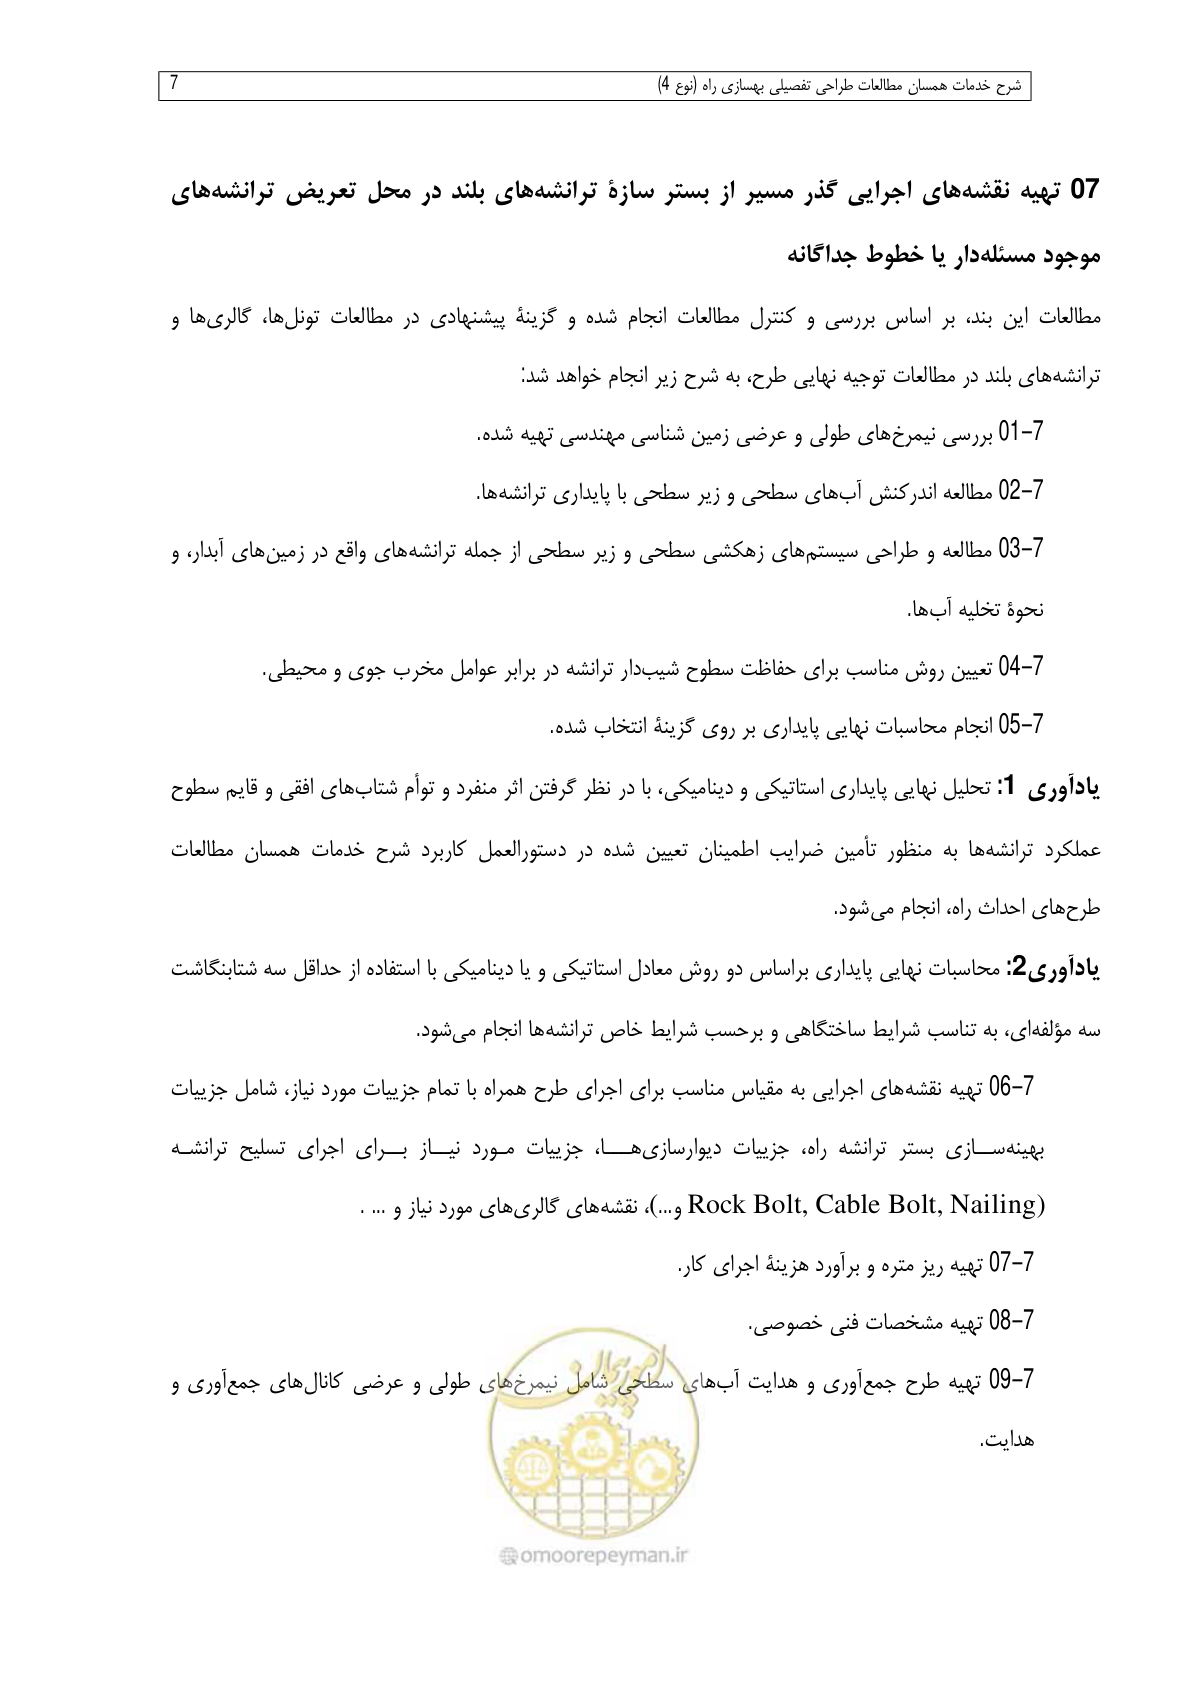 شرح خدمات همسان مطالعات طراحی تفصیلی بهسازی راه (نوع 4) 7
07 تهیه نقشه‌های اجرایی گذر مسیر از بستر سازهٔ ترانشه‌های بلند در محل تعریض ترانشه‌های
موجود مسئله‌دار یا خطوط جداگانه
مطالعات این بند، بر اساس بررسی و کنترل مطالعات انجام شده و گزینهٔ پیشنهادی در مطالعات تونل‌ها، گالری‌ها و
ترانشه‌های بلند در مطالعات توجیه نهایی طرح، به شرح زیر انجام خواهد شد:
01–7 بررسی نیمرخ‌های طولی و عرضی زمین شناسی مهندسی تهیه شده.
02–7 مطالعه اندرکنش آب‌های سطحی و زیر سطحی با پایداری ترانشه‌ها.
03–7 مطالعه و طراحی سیستم‌های زهکشی سطحی و زیر سطحی از جمله ترانشه‌های واقع در زمین‌های آبدار، و
نحوهٔ تخلیه آب‌ها.
04–7 تعیین روش مناسب برای حفاظت سطوح شیب‌دار ترانشه در برابر عوامل مخرب جوی و محیطی.
05–7 انجام محاسبات نهایی پایداری بر روی گزینهٔ انتخاب شده.
یادآوری 1: تحلیل نهایی پایداری استاتیکی و دینامیکی، با در نظر گرفتن اثر منفرد و توأم شتاب‌های افقی و قایم سطوح
عملکرد ترانشه‌ها به منظور تأمین ضرایب اطمینان تعیین شده در دستورالعمل کاربرد شرح خدمات همسان مطالعات
طرح‌های احداث راه، انجام می‌شود.
یادآوری2: محاسبات نهایی پایداری براساس دو روش معادل استاتیکی و یا دینامیکی با استفاده از حداقل سه شتابنگاشت
سه مؤلفه‌ای، به تناسب شرایط ساختگاهی و برحسب شرایط خاص ترانشه‌ها انجام می‌شود.
06–7 تهیه نقشه‌های اجرایی به مقیاس مناسب برای اجرای طرح همراه با تمام جزییات مورد نیاز، شامل جزییات
بهینه‌ســازی بستر ترانشه راه، جزییات دیوارسازی‌هــا، جزییات مـورد نیــاز بــرای اجرای تسلیح ترانشـه
(Rock Bolt, Cable Bolt, Nailing و...)، نقشه‌های گالری‌های مورد نیاز و ... .
07–7 تهیه ریز متره و برآورد هزینهٔ اجرای کار.
08–7 تهیه مشخصات فنی خصوصی.
09–7 تهیه طرح جمع‌آوری و هدایت آب‌های سطحی شامل نیمرخ‌های طولی و عرضی کانال‌های جمع‌آوری و
هدایت.
امور پیمان
omoorepeyman.ir